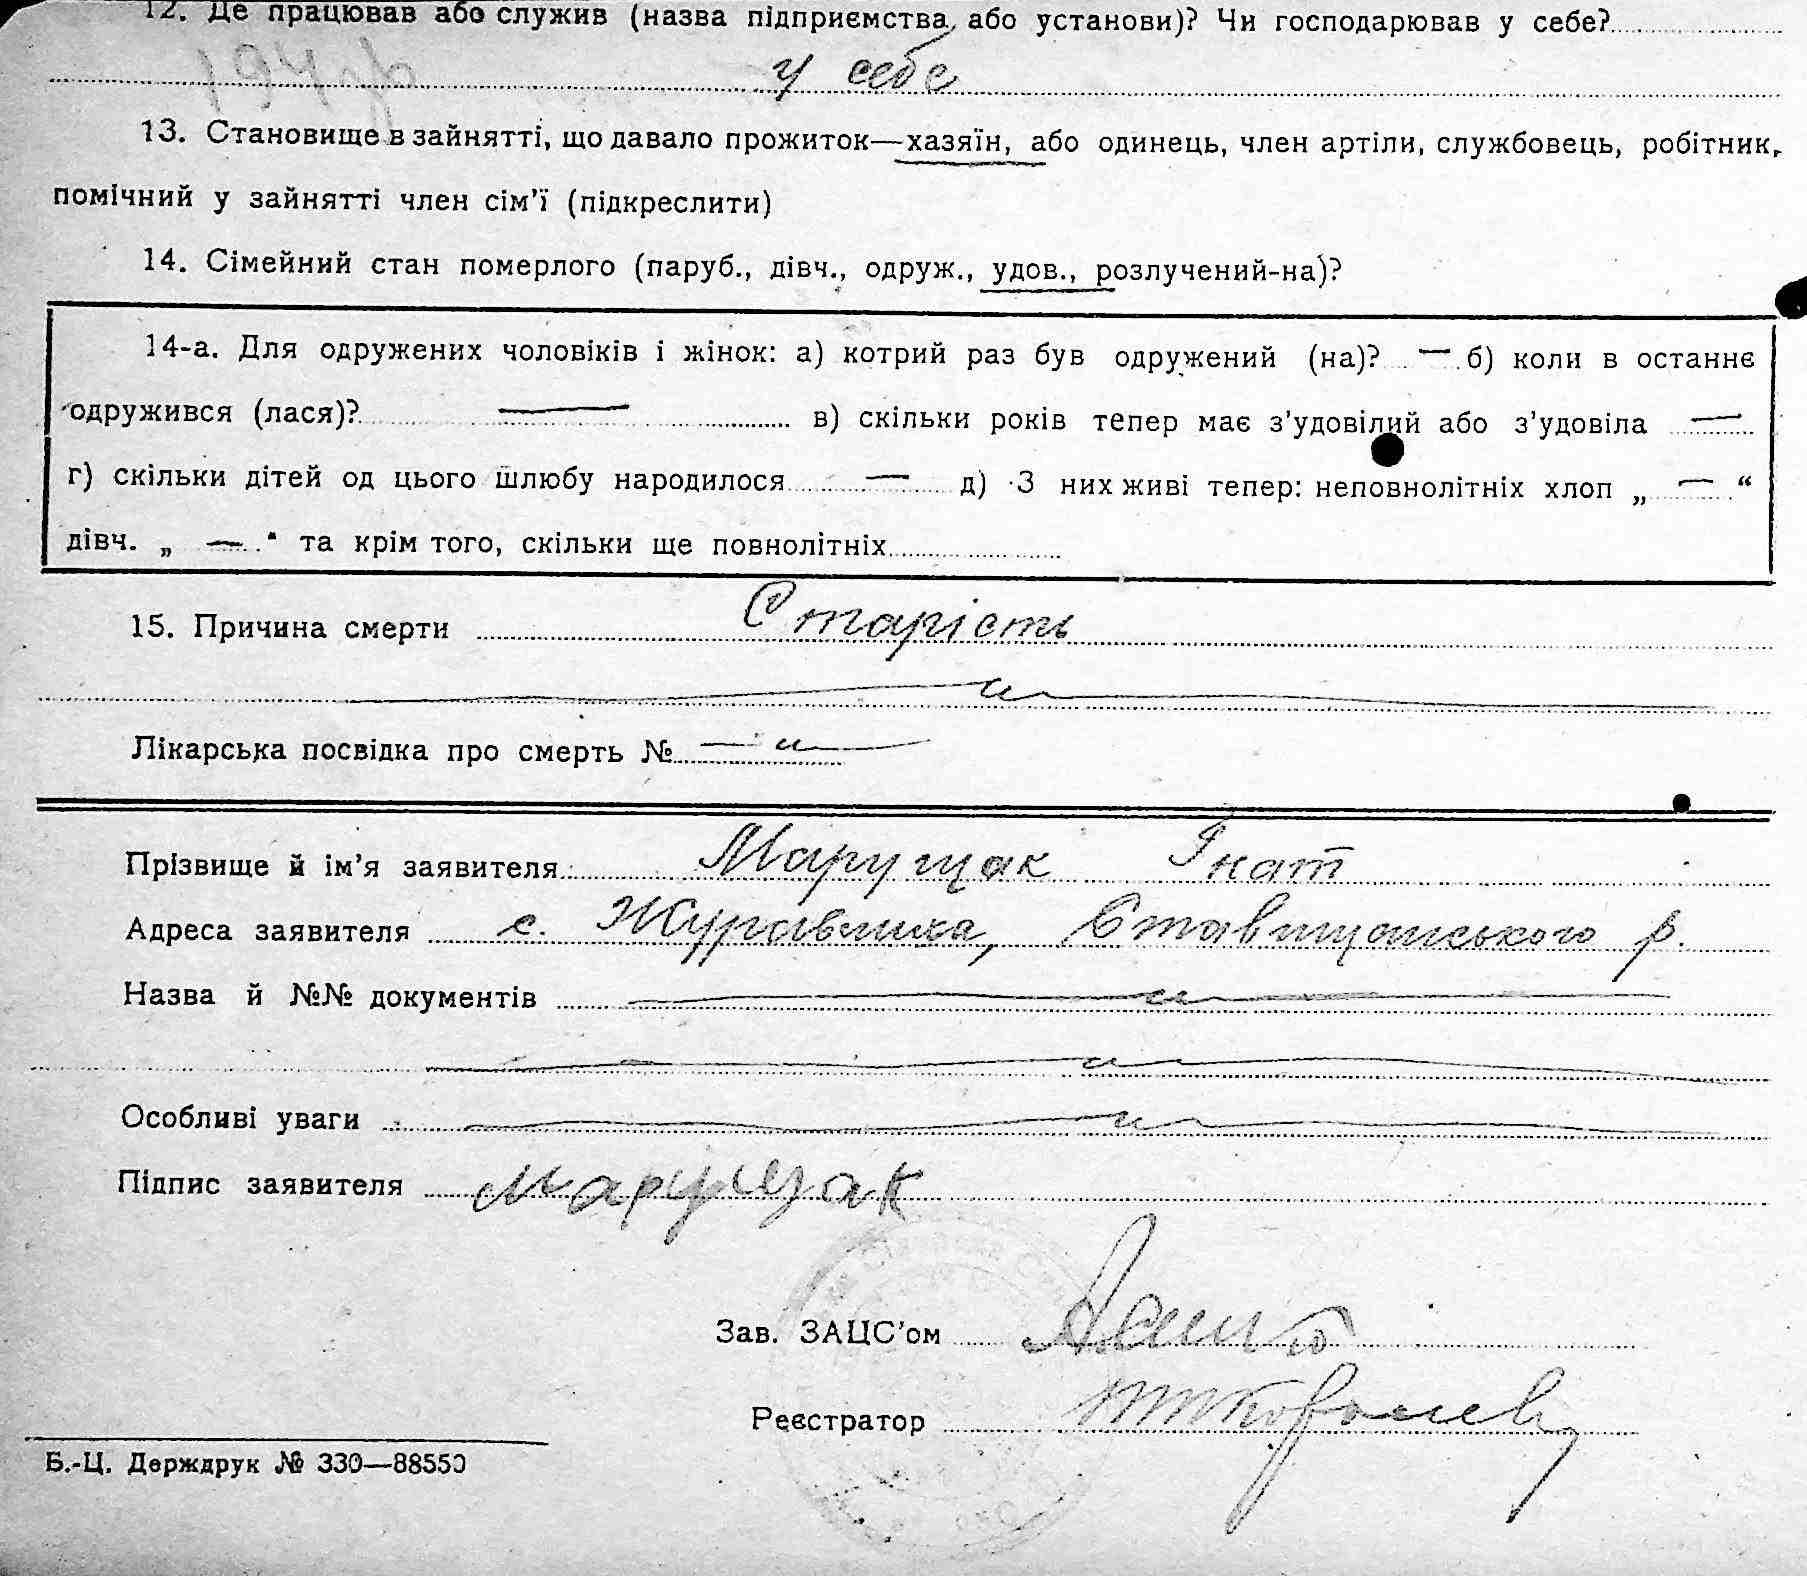 12. Де працював або служив (назва підприємства, або установи)? Чи господарював у себе?
у себе
13. Становище в зайнятті, що давало прожиток—хазяїн, або одинець, член артіли, службовець, робітник,
помічний у зайнятті член сім'ї (підкреслити)
14. Сімейний стан померлого (паруб., дівч., одруж., удов., розлучений-на)?
14-а. Для одружених чоловіків і жінок: а) котрий раз був одружений (на)? — б) коли в останнє
одружився (лася)? — в) скільки років тепер має з'удовілий або з'удовіла —
г) скільки дітей од цього шлюбу народилося — д) З них живі тепер: неповнолітніх хлоп „ — “
дівч. „ — “ та крім того, скільки ще повнолітніх
15. Причина смерти Старість
— „ —
Лікарська посвідка про смерть № — „ —
Прізвище й ім'я заявителя Марущак Гнат
Адреса заявителя с. Журавлиха, Ставищанського р.
Назва й №№ документів — „ —
— „ —
Особливі уваги — „ —
Підпис заявителя Марущак
Зав. ЗАЦС'ом
Реєстратор
Б.-Ц. Держдрук № 330—88550